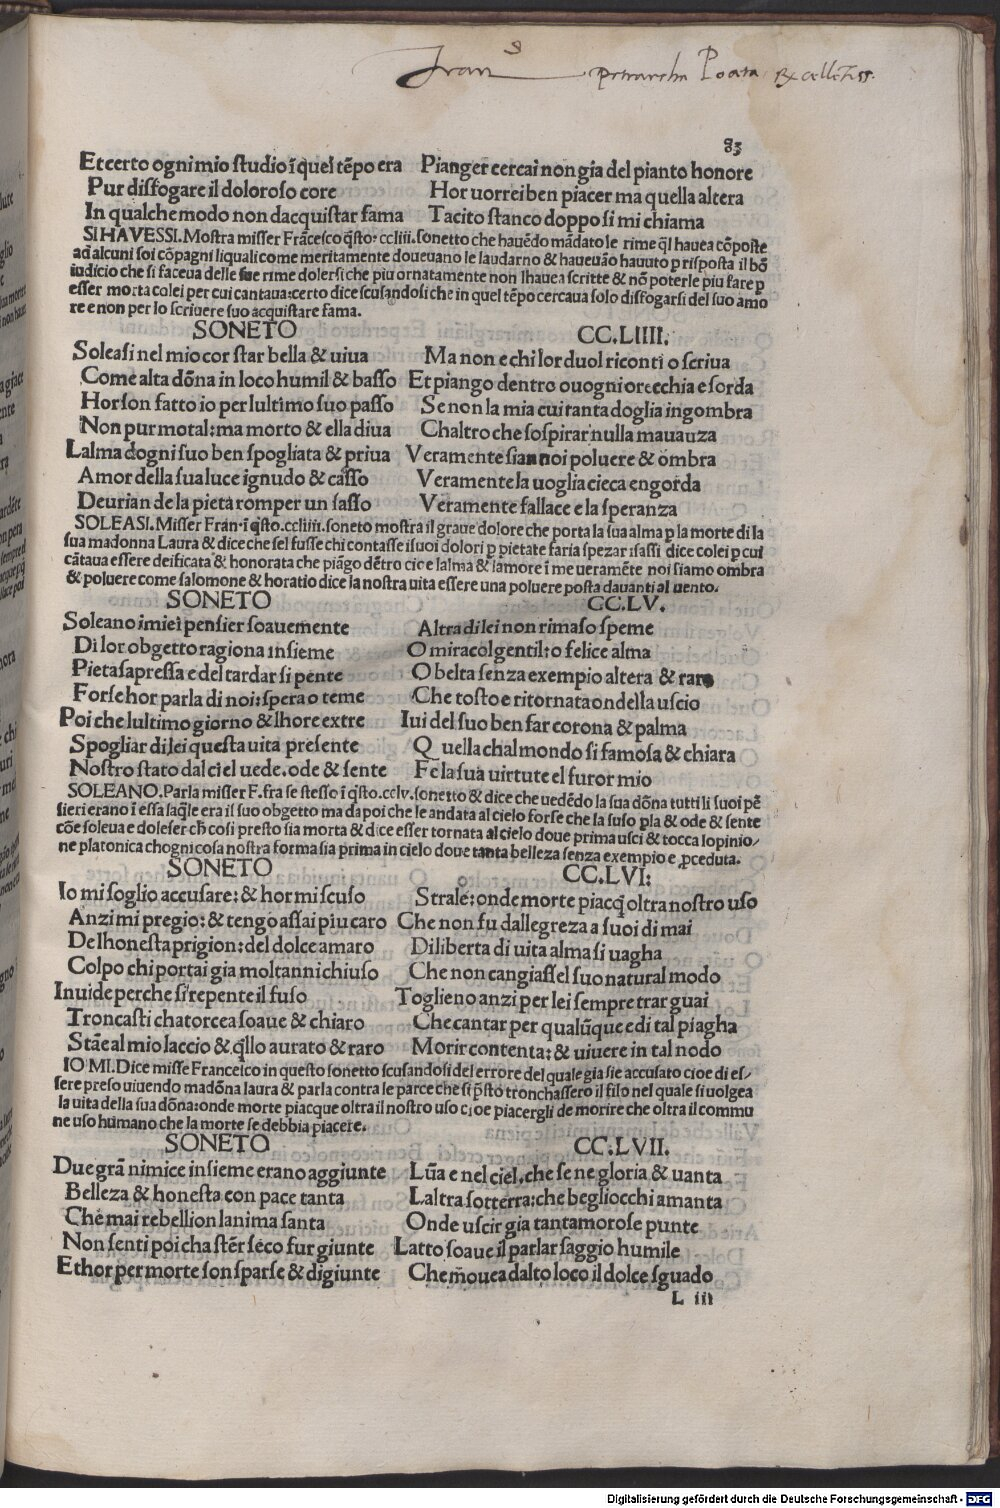 Fran s petrarcha Poeta Excellētiss.
83
Et certo ogni mio studio ī quel tēpo era Pianger cercai non gia del pianto honore
Pur disfogare il doloroso core Hor uorrei ben piacer ma quella altera
In qualche modo non dacquistar fama Tacito stanco doppo si mi chiama
SI HAVESSI. Mostra misser Frācesco q̄sto. ccliii. sonetto che hauēdo mādato le rime q̄l hauea cōposte
ad alcuni soi cōpagni li quali come meritamente doueuano le laudarno & haueuāo hauuto p risposta il bō
iudicio che si faceua delle sue rime dolersi che piu ornatamente non lhauea scritte & nō poterle piu fare p
esser morta colei per cui cantaua: certo dice scusandosi che in quel tēpo cercaua solo disfogarsi del suo amo
re e non per lo scriuere suo acquistare fama.
SONETO CC.LIIII.
Soleasi nel mio cor star bella & uiua Ma non e chi lor duol riconti o scriua
Come alta dōna in loco humil & basso Et piango dentro ouogni orecchia e sorda
Hor son fatto io per lultimo suo passo Se non la mia cui tanta doglia ingombra
Non pur motal: ma morto & ella diua Chaltro che sospirar nulla mauauza
Lalma dogni suo ben spogliata & priua Veramente sian noi poluere & ombra
Amor della sua luce ignudo & casso Veramente la uoglia cieca engorda
Deurian de la pieta romper un sasso Veramente fallace e la speranza
SOLEASI. Misser Fran. ī q̄sto. ccliiii. soneto mostra il graue dolore che porta la sua alma p la morte di la
sua madonna Laura & dice che sel fusse chi contasse i suoi dolori p pietate faria spezar i sassi dice colei p cui
cātaua essere deificata & honorata che piāgo dētro cio e lalma & lamore ī me ueramēte noi siamo ombra
& poluere come salomone & horatio dice la nostra uita essere una poluere posta dauanti al uento.
SONETO CC.LV.
Soleano i miei pensier soauemente Altra di lei non rimaso speme
Di lor obgetto ragiona insieme O miracol gentil: o felice alma
Pieta sapressa e del tardar si pente O belta senza exempio altera & rara
Forse hor parla di noi: spera o teme Che tosto e ritornata ondella uscio
Poi che lultimo giorno & lhore extre Iui del suo ben far corona & palma
Spogliar di lei questa uita presente Q uella chal mondo si famosa & chiara
Nostro stato dal ciel uede. ode & sente Fe la sua uirtute el furor mio
SOLEANO. Parla misser F. fra se stesso ī q̄sto. cclv. sonetto & dice che uedēdo la sua dōna tutti li suoi pē
sieri erano ī essa laq̄le era il suo obgetto ma da poi che le andata al cielo forse che la suso p̄la & ode & sente
cōe soleua e doleser ch̄ cosi presto sia morta & dice esser tornata al cielo doue prima usci & tocca lopinio-
ne platonica chogni cosa nostra forma sia prima in cielo doue tanta belleza senza exempio e p̱ceduta.
SONETO CC.LVI:
Io mi soglio accusare: & hor mi scuso Strale: onde morte piacq̄ oltra nostro uso
Anzi mi pregio: & tengo assai piu caro Che non fu dallegreza a suoi di mai
Delhonesta prigion: del dolce amaro Di liberta di uita alma si uagha
Colpo chi portai gia moltanni chiuso Che non cangiassel suo natural modo
Inuide perche si repente il fuso Toglieno anzi per lei sempre trar guai
Troncasti chatorcea soaue & chiaro Che cantar per qualūque e di tal piagha
Stāe al mio laccio & q̄llo aurato & raro Morir contenta: & uiuere in tal nodo
IO MI. Dice misse Francesco in questo sonetto scusandosi del errore del quale gia sie accusato cioe di es-
sere preso uiuendo madōna laura & parla contra le parce che si p̄sto tronchassero il filo nel quale si uolgea
la uita della sua dōna: onde morte piacque oltra il nostro uso cioe piacergli de morire che oltra il commu
ne uso humano che la morte se debbia piacere.
SONETO CC.LVII.
Due grā nimice insieme erano aggiunte Lūa e nel ciel. che se ne gloria & uanta
Belleza & honesta con pace tanta Laltra sotterra: che begliocchi amanta
Che mai rebellion lanima santa Onde uscir gia tantamorose punte
Non senti poi cha stēr seco fur giunte Latto soaue il parlar saggio humile
Et hor per morte son sparse & digiunte Che m̄ouea dalto loco il dolce sguado
L iii
Digitalisierung gefördert durch die Deutsche Forschungsgemeinschaft - DFG